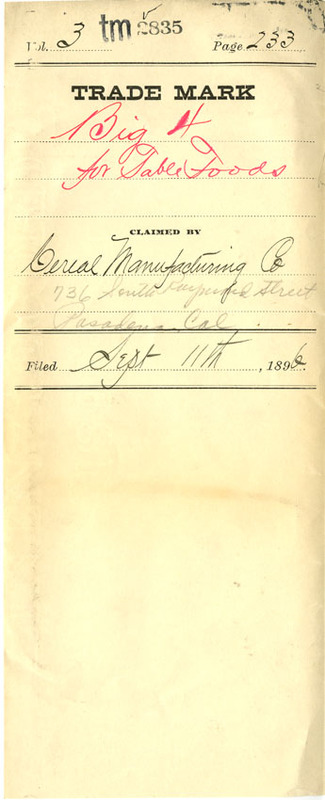 Vol. 3 tm 2835 Page 233
TRADE MARK
Big 4
for Table Foods
CLAIMED BY
Cereal Manufacturing Co
736 South Street
Pasadena Cal
Filed Sept 11th, 1896